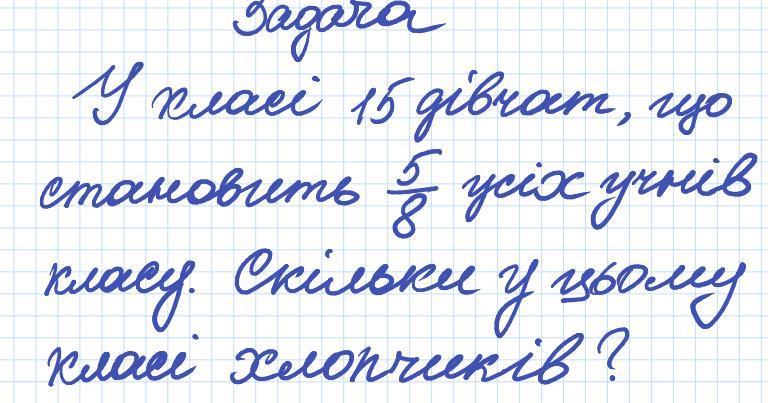 Задача
У класі 15 дівчат, що
становить 5/8 усіх учнів
класу. Скільки у цьому
класі хлопчиків?